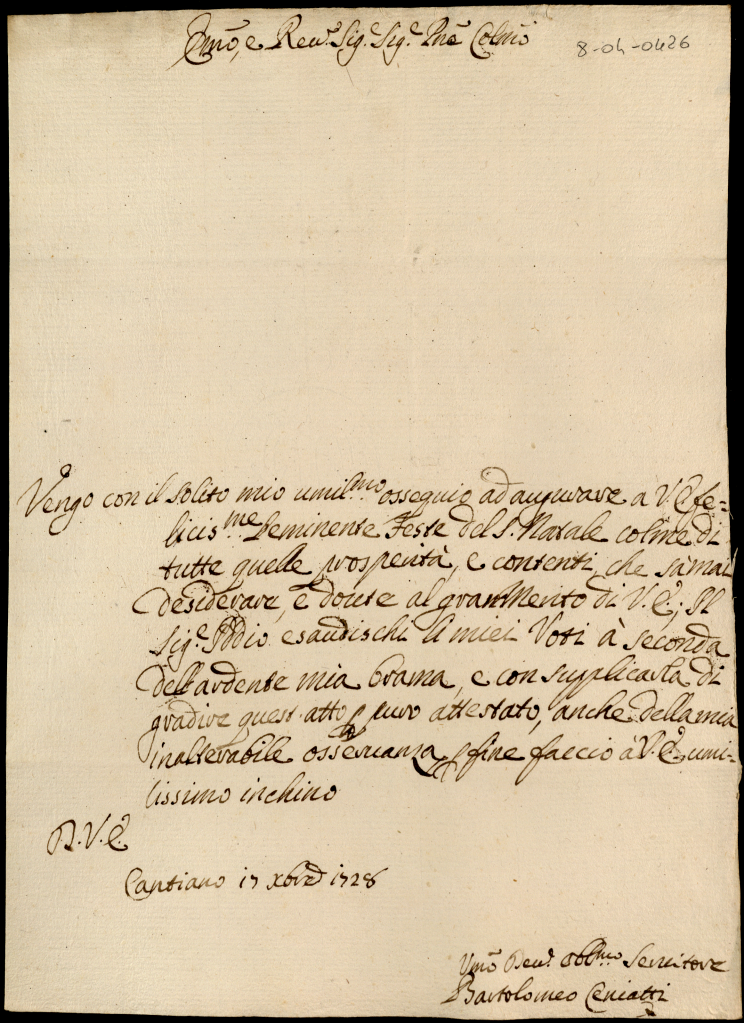 Emõ, e Reu.º Sig.e Sig.e Pñe Colmõ
8-04-0426
Vengo con il solito mio umil.mo ossequio ad augurare a V.E. fe=
licis.me l'eminente Feste del S. Natale colme di
tutte quelle prosperità, e contenti, che sà mai
desiderare, e doute al gran Merito di V.E.; Il
Sig.e Iddio esaudischi li miei Voti à seconda
dell'ardente mia brama, e con supplicarla di
gradire quest'atto p puro attestato, anche della mia
inalterabile osseruanza, p fine faccio à V.E. umi=
lissimo inchino
D.V.E.
Cantiano 17 Xbre 1728
Vmõ Deu.º obb.mo Seruitore
Bartolomeo Ceniatti